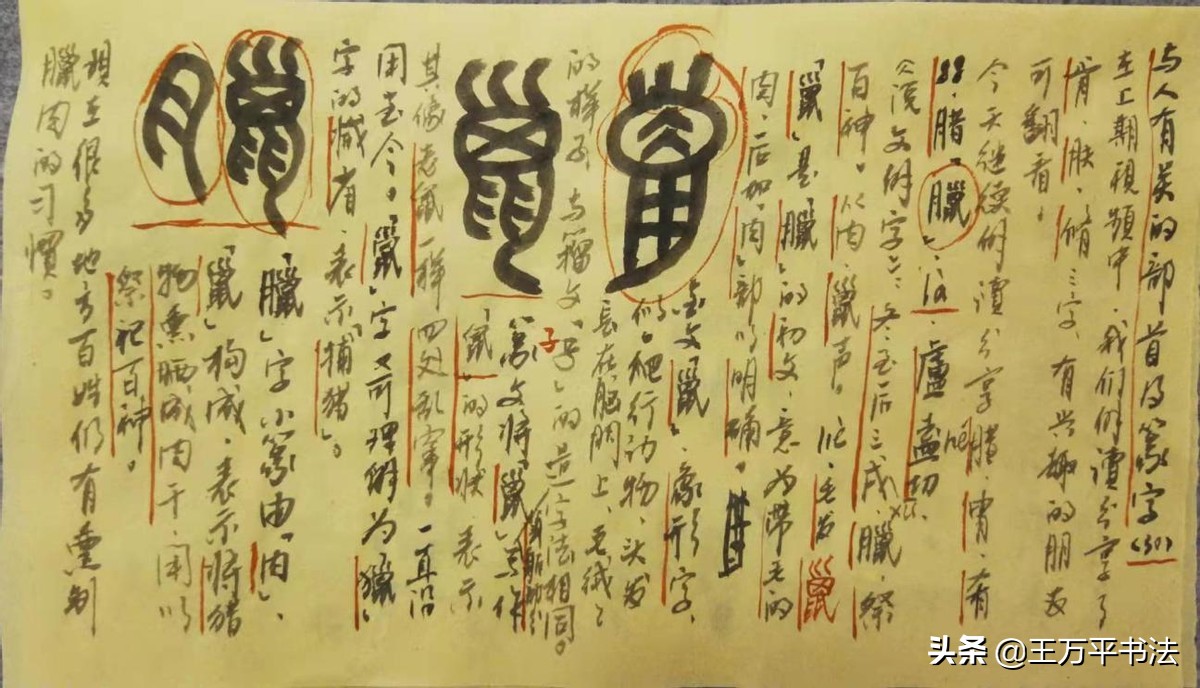 与人有关的部首及篆字(30)
在上期视频中,我们解读分享了
骨、肤、脩三字,有兴趣的朋友
可翻看。
今天继续解读分享腊、胃、有
88.腊「臘」là 盧盍切
《说文解字》:冬至后三戌,臘祭
百神。从肉,巤声。
「巤」是「臘」的初文,意为带毛的
肉,后加「肉」部以明确。
金文「巤」象形字,
似爬行动物,头发
长在脑門上,毛绒绒
的样子,与籀文「子」的造字法相同。
篆文将「巤」写作
「鼠」的形状,表示
其像老鼠一样四处乱窜。一直沿
用至今。「巤」字又可理解为「獵」
字的减省,表示「捕猎」。
「臘」字小篆由「肉」、
「巤」构成,表示将猎
物熏腊成肉干,用以
祭祀百神。
现在很多地方百姓仍有熏制
臘肉的习惯。
头条 @王万平书法